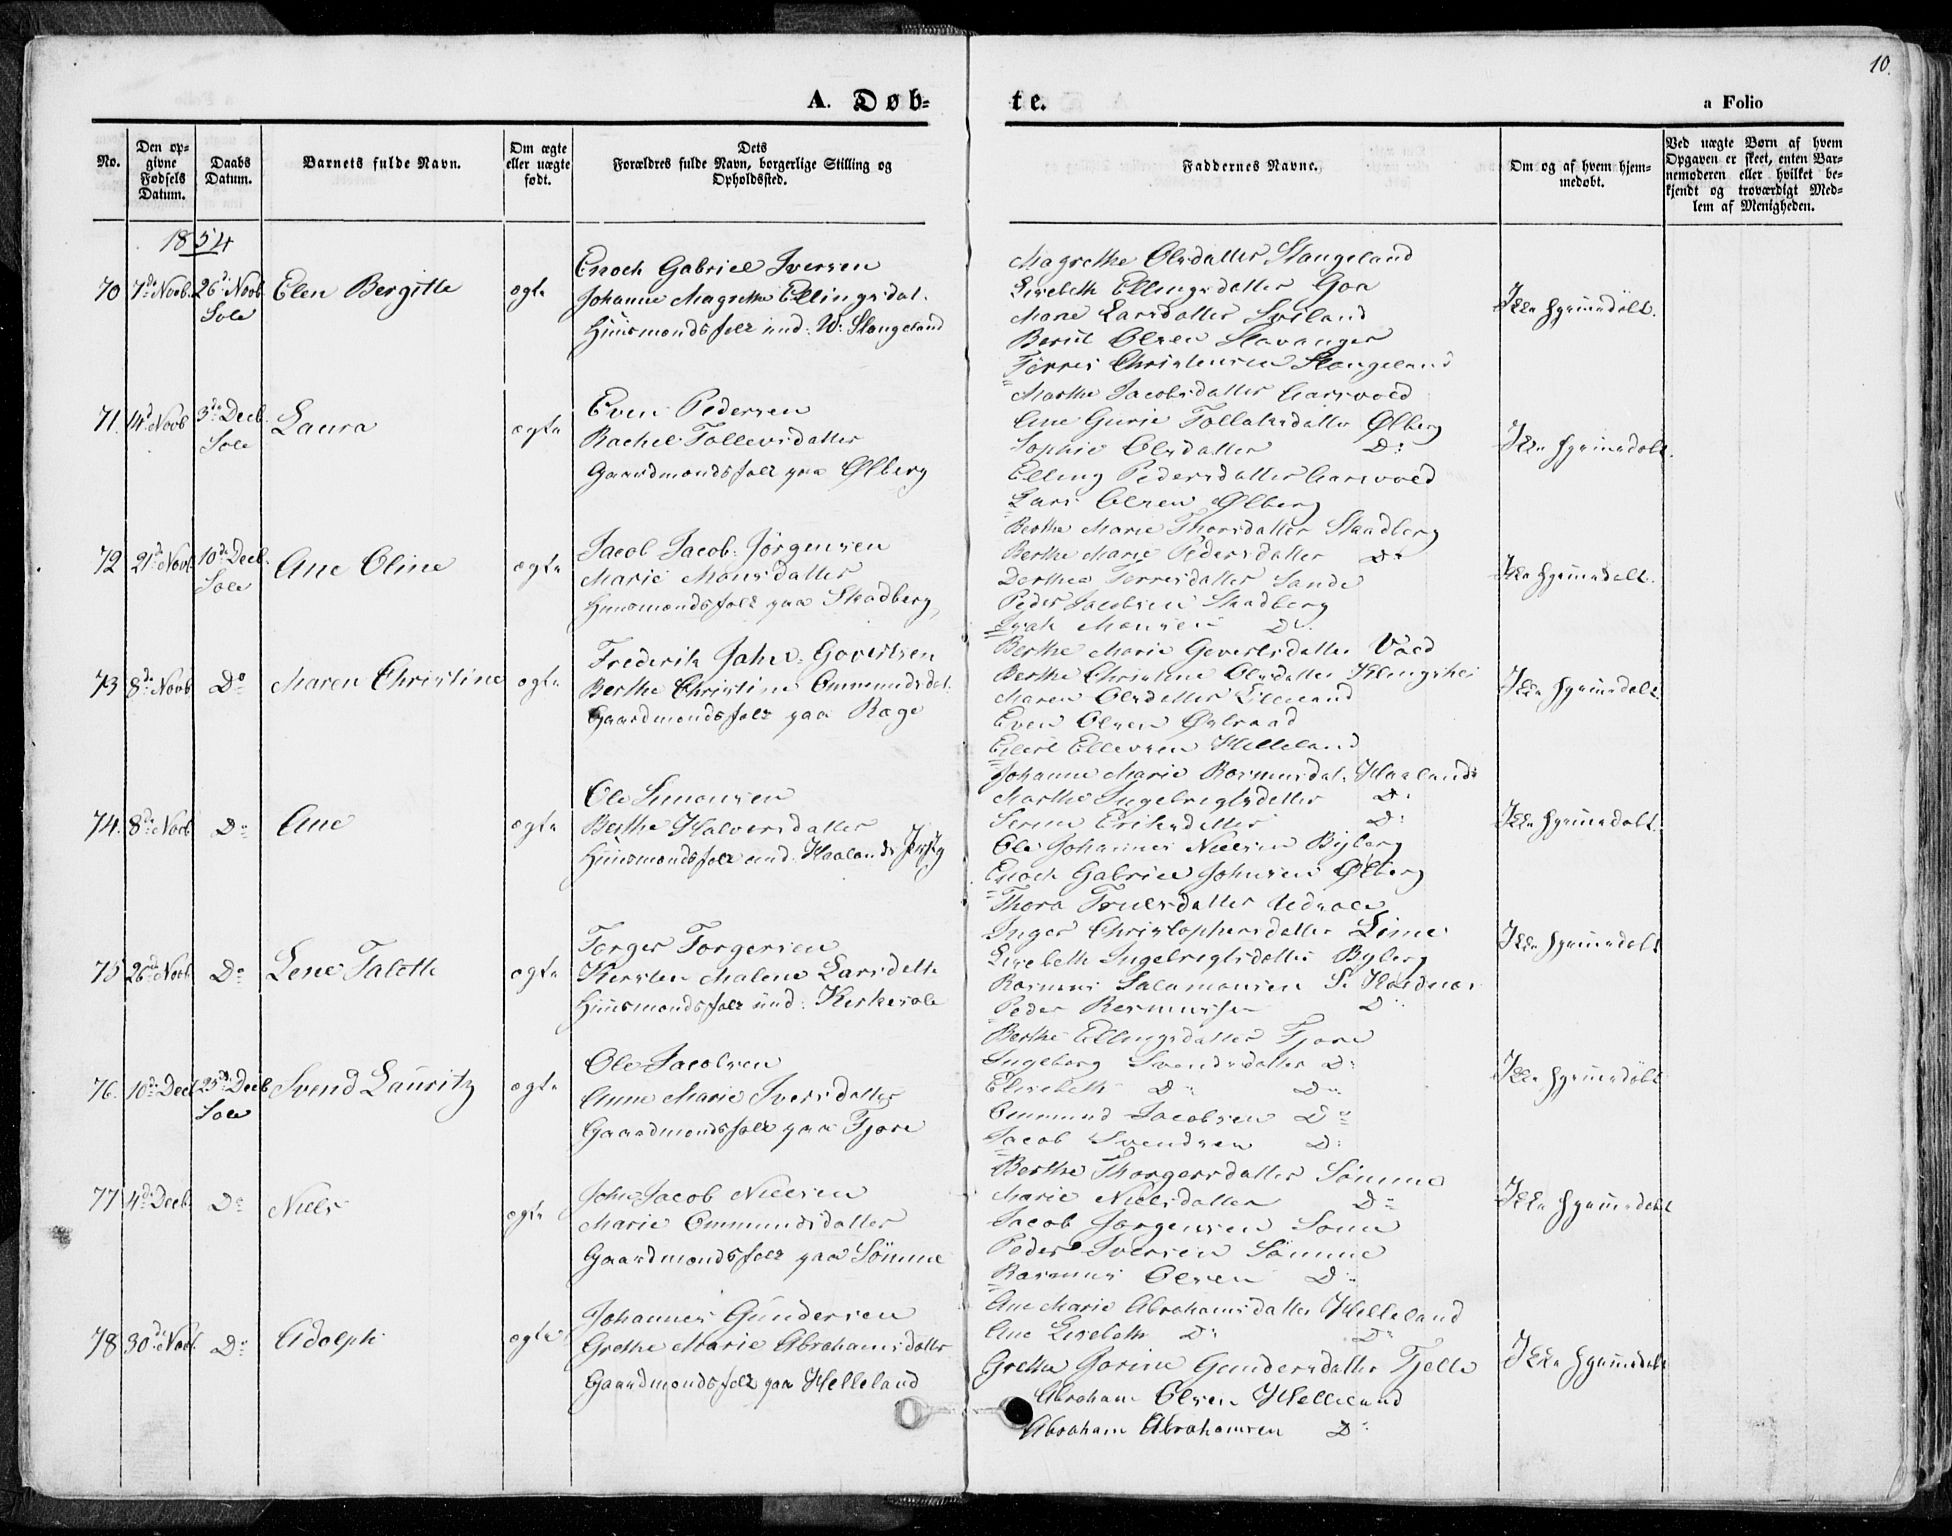 10.
A. Døb-
te.
a Folio
No.
Den op-
givne
Fødsels
Datum.
Daabs
Datum.
Barnets fulde Navn.
Om ægte
eller uægte
født.
Dets
Forældres fulde Navn, borgerlige Stilling og
Opholdssted.
Faddernes Navne.
Om og af hvem hjem-
medøbt.
Ved uægte Børn af hvem
Opgaven er skeet, enten Bar-
nemoderen eller hvilket be-
kjendt og troværdigt Med-
lem af Menigheden.
1854
70 7de Novb. 26de Novb Sole
Elen Bergitte
ægte
Enoch Gabriel Iversen
Johanne Magrethe Ellingsdat.
Huusmandsfolk und: W: Stangeland
Magrethe Olsdatter Stangeland
Lisebeth Ellingsdatter Goa
Marie Larsdatter Soeland
Berüt Olsen Stavanger
Törres Christensen Stangeland
Ikke hjemmedöbt.
71. 14d Novb 3de Decb. Sole
Laura
ægte
Even Pedersen
Rachel Tollevsdatter
Gaardmandsfolk paa Ølberg
Marthe Jacobsdatter Aarsvold
Ane Gurie Tollaksdatter Ølberg
Sophie Olsdatter D:
Elling Pedersdatter Aarsvold
Lars Olsen Ølberg
Ikke hjemmedöbt.
72 21de Novb. 10de Decb. Sole
Ane Oline
ægte
Jacob Jacob: Jörgensen
Marie Monsdatter
Huusmandsfolk paa Skadberg
Berthe Marie Thorsdatter Skadberg
Berthe Marie Pedersdatter Do
Dorthea Torresdatter Sande
Peder Jacobsen Skadberg
Isak Monsen D:
Ikke hjemmedöbt.
73 8de Novb Do
Maren Christine
ægte
Frederik Johs. Govertsen
Berthe Christine Ommundsdat.
Gaardmandsfolk paa Ræge
Berthe Marie Govertsdatter Vold
Berthe Christine Olsdatter Klingshei
Maren Olsdatter
Even Olsen
Ellevsen Helleland
Ikke hjemmedöbt.
74. 8de Novb D:
Ane
ægte
Ole Simonsen
Berthe Halvorsdatter
Huusmandsfolk und. Haalands
Johanne Marie Rasmusdat. Haaland
Marthe Ingebregtsdatter D:
Serine Eriksdatter D:
Ole Johannes Nielsen Byberg
Enoch Gabriel Johnsen Ølberg
Ikke hjemmedöbt.
75 26de Novb. D:
Lene Talette
ægte
Torger Torgersen
Kirsten Malene Larsdatt.
Huusmandsfolk und: Kirkesole
Thora Truelsdatter
Inger Christophersdatter Lime
Lisebeth Ingebregtsdatter Byberg
Rasmus Salamonsen
Peder Rasmussen D:
Ikke hjemmedöbt
76. 10de Decb 25de Decb. Sole
Svend Lauritz
ægte
Ole Jacobsen
Anne Marie Iversdatter
Gaardmandsfolk paa Tjore
Berthe Ellingsdatter Tjore
Ingeborg Svendsdatter D:
Elisebeth D: D:
Ommund Jacobsen D:
Jacob Svendsen D:
Ikke hjemmedöbt
77 4de Decb. D:
Niels
ægte
John Jacob Nielsen
Marie Ommundsdatter
Gaardmandsfolk paa Sömme
Berthe Thorgersdatter Sömme
Marie Nielsdatter D:
Jacob Jörgensen Somme
Peder Iversen Sömme
Rasmus Olsen D:
Ikke hjemmedöbt
78 30de Novb. D:
Adolph
ægte
Johannes Gundersen
Grethe Marie Abrahamsdatter
Gaardmandsfolk paa Helleland
Ane Marie Abrahamsdatter Helleland
Ane Lisebeth D: D:
Grethe Gorine Gundersdatter Tjelle
Abraham Olsen Helleland
Abraham Abrahamsen D:
Ikke hjemmedöbt